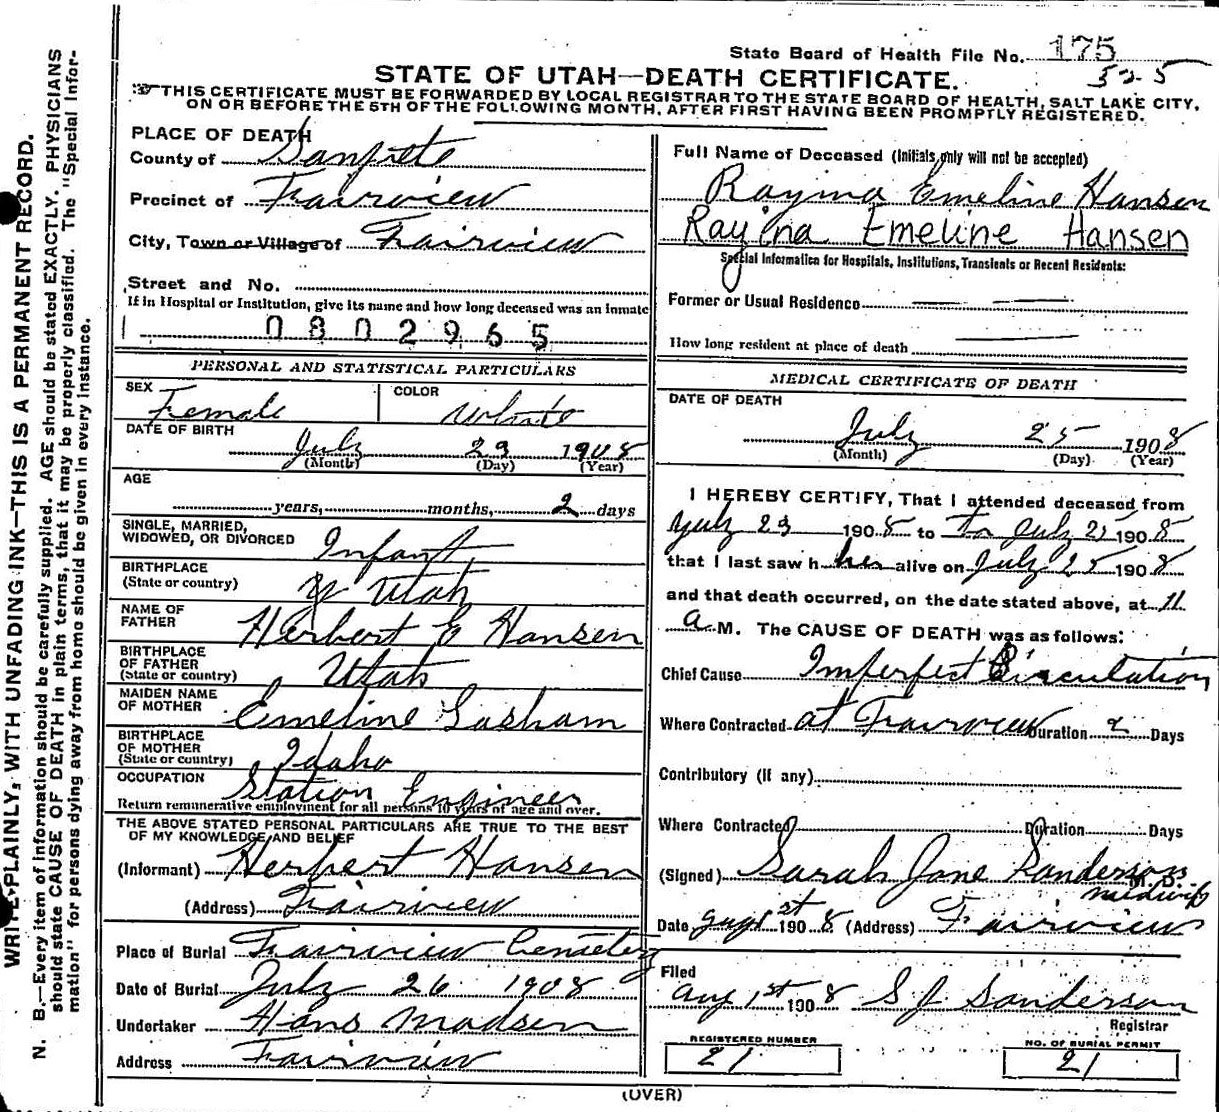 State Board of Health File No. 175
525
STATE OF UTAH—DEATH CERTIFICATE.
THIS CERTIFICATE MUST BE FORWARDED BY LOCAL REGISTRAR TO THE STATE BOARD OF HEALTH, SALT LAKE CITY,
ON OR BEFORE THE 5TH OF THE FOLLOWING MONTH, AFTER FIRST HAVING BEEN PROMPTLY REGISTERED.
WRITE PLAINLY, WITH UNFADING INK—THIS IS A PERMANENT RECORD.
N. B.—Every item of information should be carefully supplied. AGE should be stated EXACTLY. PHYSICIANS
should state CAUSE OF DEATH in plain terms, that it may be properly classified. The "Special Infor-
mation" for persons dying away from home should be given in every instance.
PLACE OF DEATH
County of Sanpete
Precinct of Fairview
City, Town or Village of Fairview
Street and No.
If in Hospital or Institution, give its name and how long deceased was an inmate
0802965
PERSONAL AND STATISTICAL PARTICULARS
SEX Female COLOR White
DATE OF BIRTH
July 23 1908
(Month) (Day) (Year)
AGE
years, months, 2 days
SINGLE, MARRIED,
WIDOWED, OR DIVORCED Infant
BIRTHPLACE
(State or country) Utah
NAME OF
FATHER Herbert E Hansen
BIRTHPLACE
OF FATHER
(State or country) Utah
MAIDEN NAME
OF MOTHER Emeline
BIRTHPLACE
OF MOTHER
(State or country) Idaho
OCCUPATION Station Engineer
Return remunerative employment for all persons 10 years of age and over.
THE ABOVE STATED PERSONAL PARTICULARS ARE TRUE TO THE BEST
OF MY KNOWLEDGE AND BELIEF
(Informant) Herbert Hansen
(Address) Fairview
Place of Burial Fairview Cemetery
Date of Burial July 26 1908
Undertaker Hans Madsen
Address Fairview
Full Name of Deceased (Initials only will not be accepted)
Rayina Emeline Hansen
Rayina Emeline Hansen
Special Information for Hospitals, Institutions, Transients or Recent Residents:
Former or Usual Residence
How long resident at place of death
MEDICAL CERTIFICATE OF DEATH
DATE OF DEATH
July 25 1908
(Month) (Day) (Year)
I HEREBY CERTIFY, That I attended deceased from
July 23 1908 to to July 25 1908
that I last saw h her alive on July 25 1908
and that death occurred, on the date stated above, at 11
a M. The CAUSE OF DEATH was as follows:
Chief Cause Imperfect Circulation
Where Contracted at Fairview Duration 2 Days
Contributory (If any)
Where Contracted Duration Days
(Signed) Sarah Jane Sanderson M. D.
midwife
Date Aug 1st 1908 (Address) Fairview
Filed
Aug 1st 1908 S J Sanderson
Registrar
REGISTERED NUMBER
21
NO. OF BURIAL PERMIT
21
(OVER)